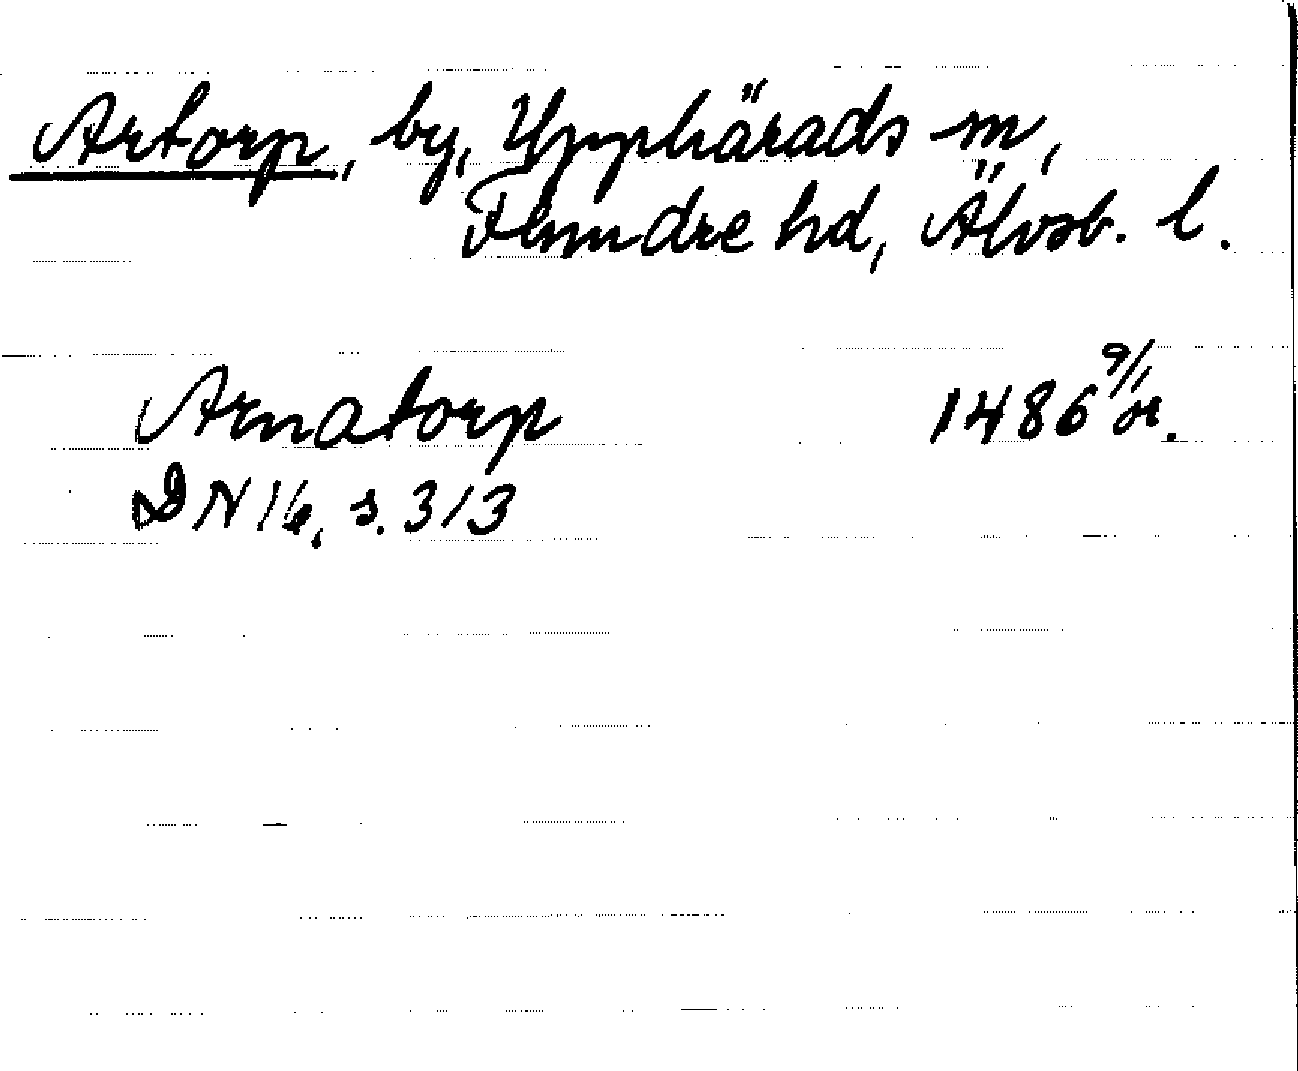 Artorp, by, Upphärads sn,
Flundre hd, Älvsb. l.
Arnatorp 1486 9/1 or.
DN 16, s. 313